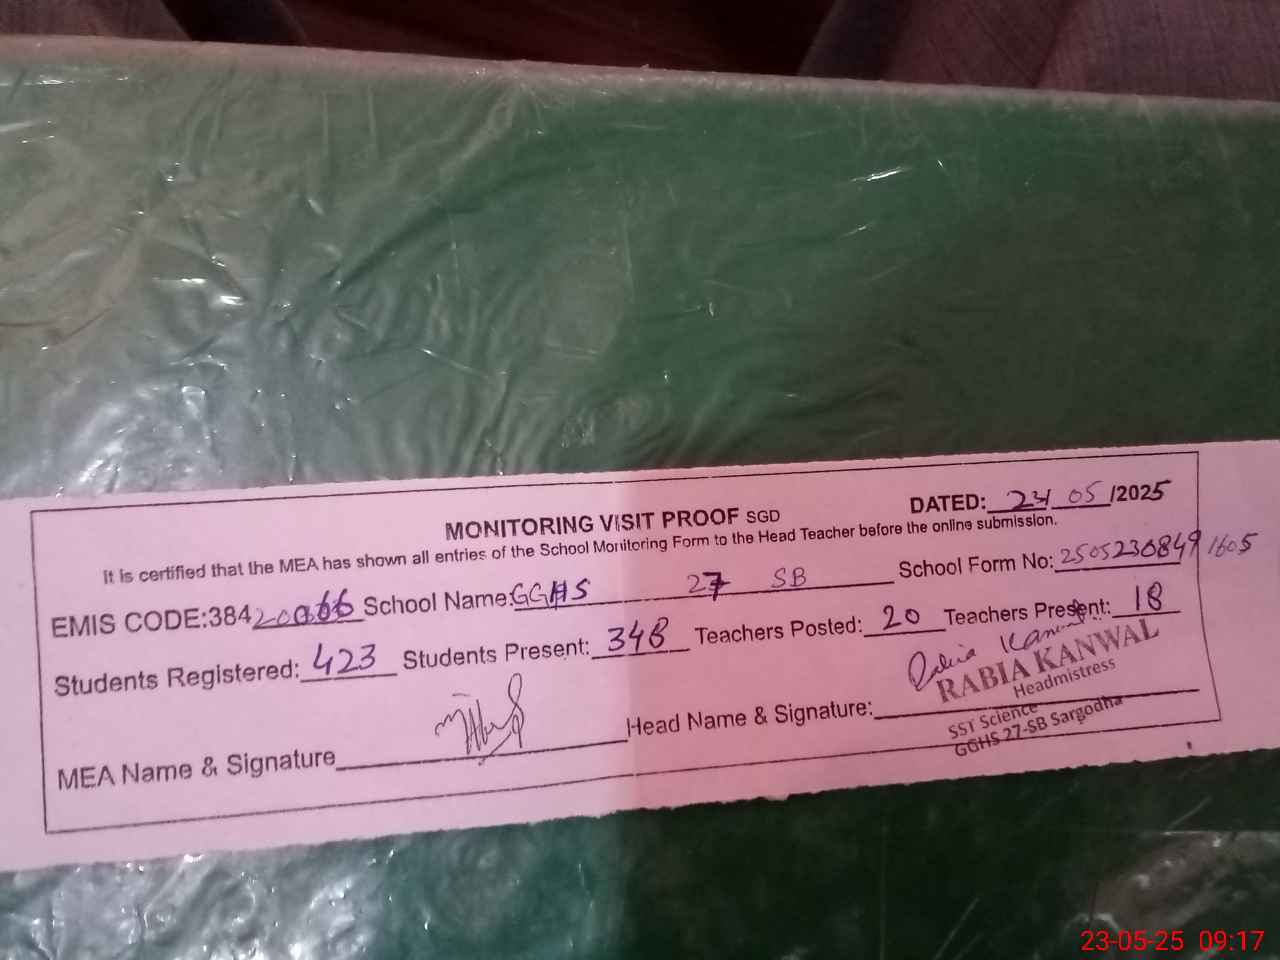 MONITORING VISIT PROOF SGD
DATED: 23/05/2025
It is certified that the MEA has shown all entries of the School Monitoring Form to the Head Teacher before the online submission.
EMIS CODE:38420066 School Name:GGHS 27 SB School Form No: 25052308491605
Students Registered: 423 Students Present: 348 Teachers Posted: 20 Teachers Present: 18
MEA Name & Signature Head Name & Signature: Rabia Kanwal
RABIA KANWAL
Headmistress
SST Science
GGHS 27-SB Sargodha
23-05-25 09:17